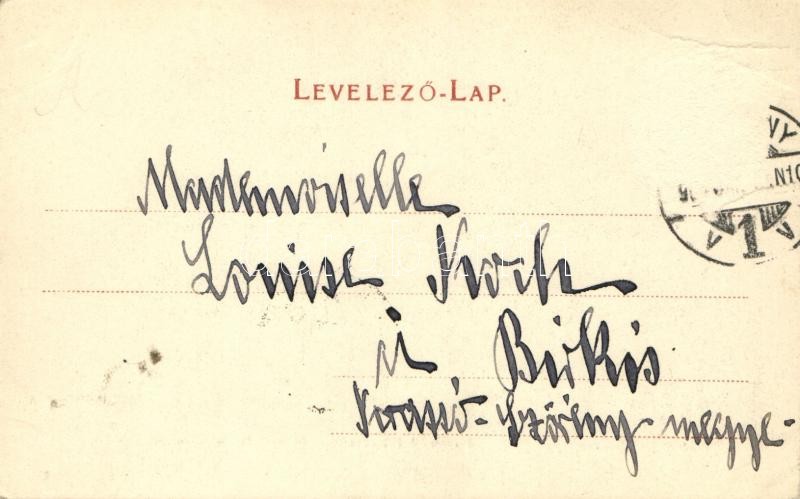 LEVELEZŐ-LAP.
Mademoiselle
Louise Koch
à Bükös
Krassó-Szörény megye-
1